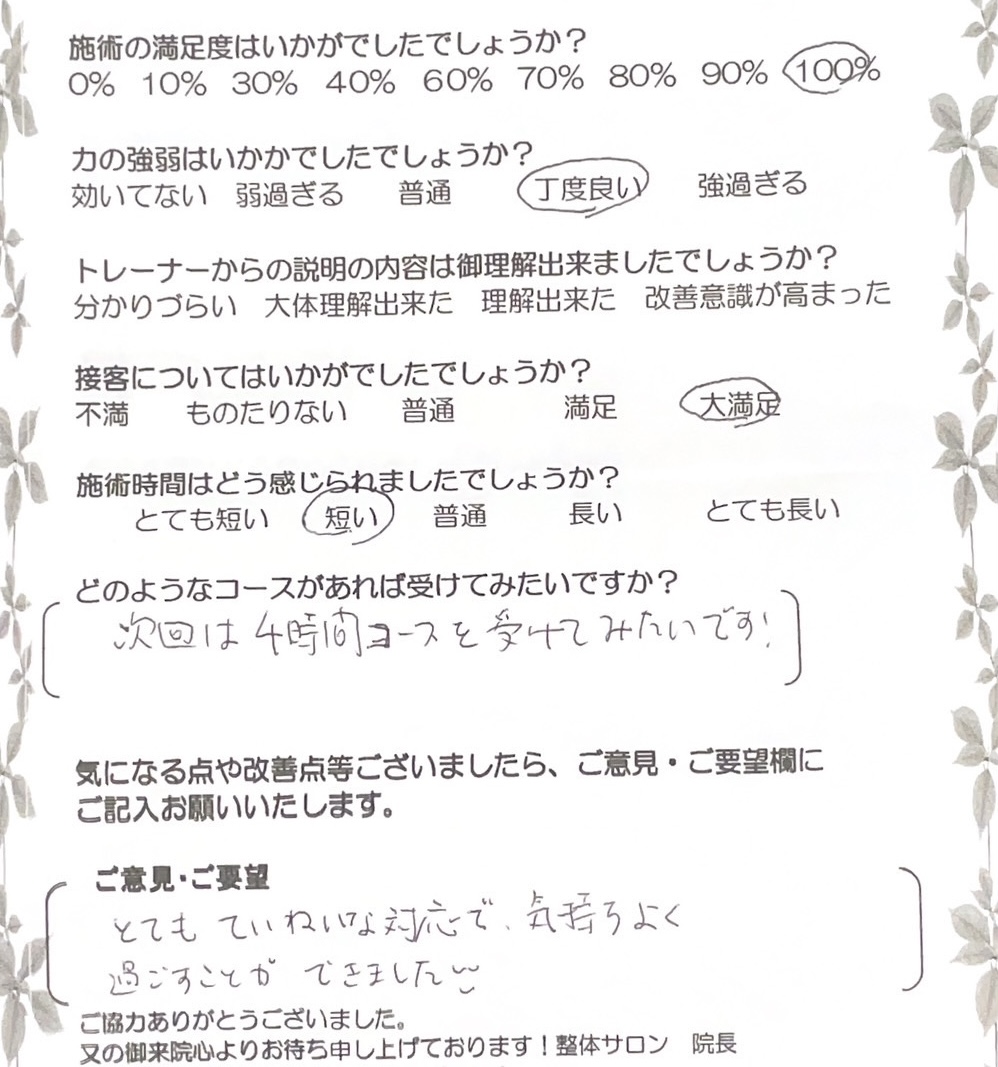 施術の満足度はいかがでしたでしょうか？
0% 10% 30% 40% 60% 70% 80% 90% 100%
力の強弱はいかかでしたでしょうか？
効いてない 弱過ぎる 普通 丁度良い 強過ぎる
トレーナーからの説明の内容は御理解出来ましたでしょうか？
分かりづらい 大体理解出来た 理解出来た 改善意識が高まった
接客についてはいかがでしたでしょうか？
不満 ものたりない 普通 満足 大満足
施術時間はどう感じられましたでしょうか？
とても短い 短い 普通 長い とても長い
どのようなコースがあれば受けてみたいですか？
次回は4時間コースを受けてみたいです!
気になる点や改善点等ございましたら、ご意見・ご要望欄に
ご記入お願いいたします。
ご意見・ご要望
とても ていねいな対応で、気持ちよく
過ごすことが できました
ご協力ありがとうございました。
又の御来院心よりお待ち申し上げております！整体サロン 院長